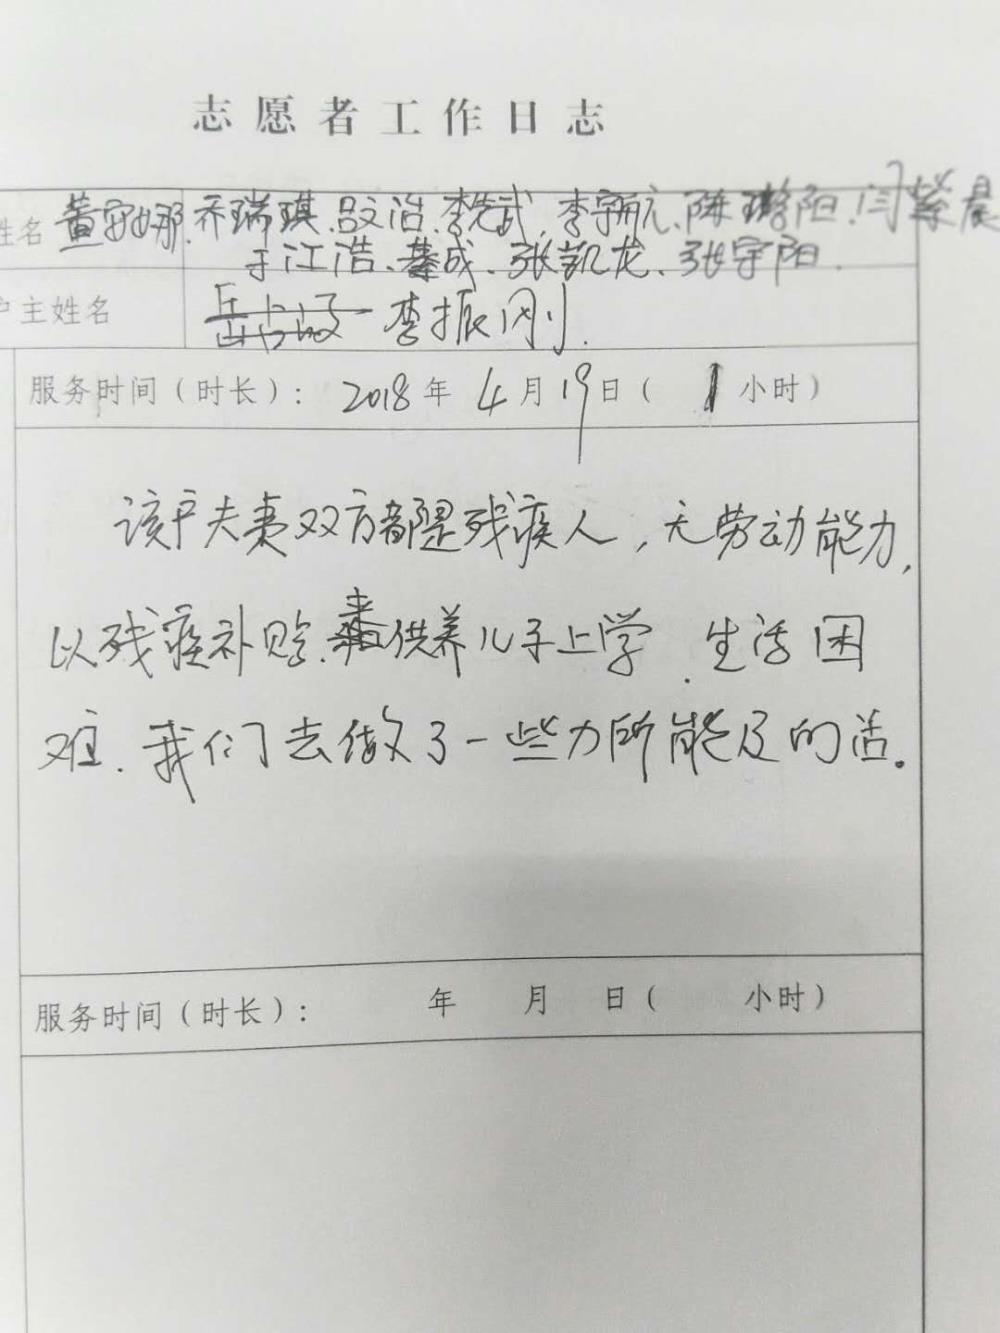 志愿者工作日志
姓名 董安娜、乔瑞琪、吕文治、李先武、李宇航、陈璐阳、闫紫晨
于江浩、綦成、张凯龙、张宇阳.
户主姓名 李振刚.
服务时间（时长）： 2018年 4月19日（ 1小时）
该户夫妻双方都是残疾人，无劳动能力，
以残疾补贴、来供养儿子上学、生活困
难、我们去做了一些力所能及的活。
服务时间（时长）： 年 月 日（ 小时）